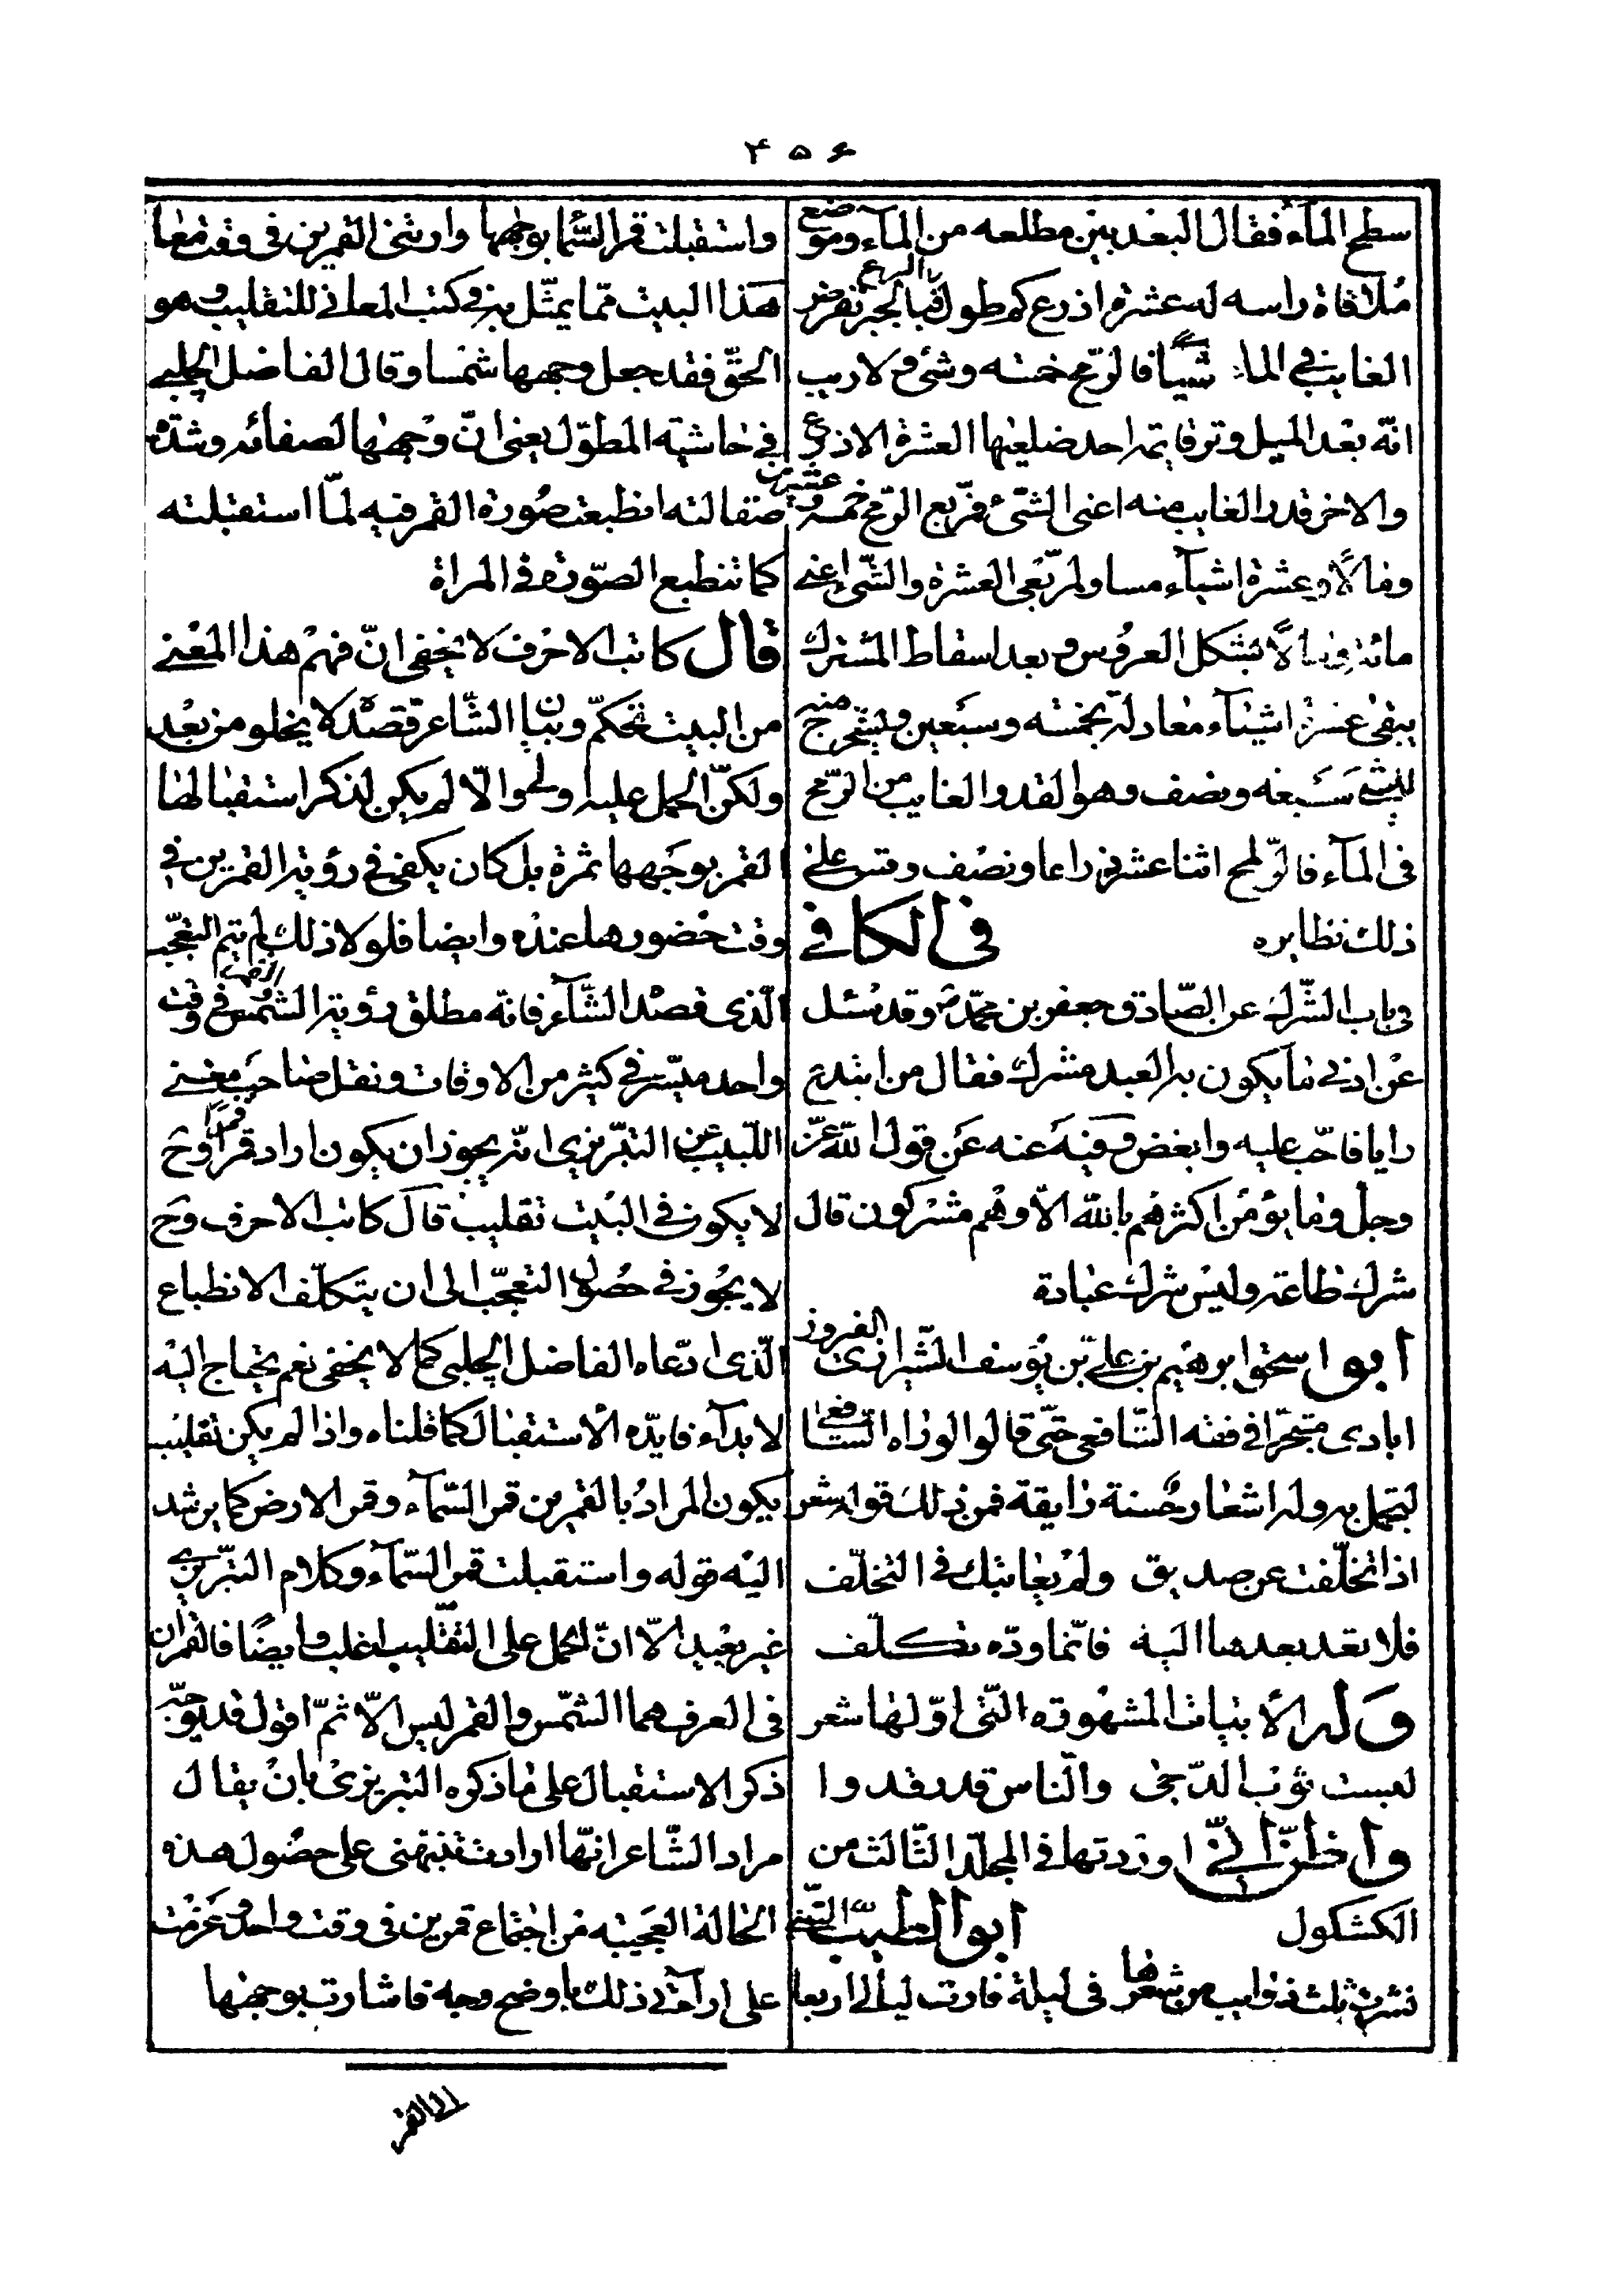 ۴۵۶
سطح المآء فقال البعد بين مطلعه من المآء وموضع
ملاقاة راسه له عشرة اذرع كم طول الرمح فبالجبر نفرض
الغايب فی الماء شيئا فالرمح خمسة وشیء ولا ريب
انّه بعد الميل وتر قايمة احد ضلعيها العشرة الاذرع
والاخر قدر الغايب منه اعنی الشیء فمربع الرمح خمسة وعشرين
ومالا وعشرة اشيآء مساو لمربعی العشرة والشیء اعنی
مائة ومالا بشكل العروس وبعد اسقاط المشترك
يبقی عشرة اشيآء معادلة بخمسة وسبعين ويستخرج منه
للشیء سبعة ونصف وهو القدر الغايب من الرمح
فی المآء فالرمح اثنا عشر ذراعا ونصف وقس علی
ذلك نظايره فی الكافی
فی باب الشرك عن الصادق جعفر بن محمد وقد سئل
عن ادنی ما يكون به العبد مشرك فقال من ابتدع
رايا فاحب عليه وابغض وفيه عنه عن قول الله عزّ
وجل وما يؤمن اكثرهم بالله الّا وهم مشركون قال
شرك طاعة وليس شرك عبادة
ابو اسحق ابرهيم بن علی بن يوسف الشيرازی الفروز
ابادی متبحرا فی فقه الشافعی حتی قالوا لو راه الشافعی
لتجمل به وله اشعار حسنة رايقة فمن ذلك قوله شعر
اذا تخلّفت عن صديق ولم يعاتبك فی التخلّف
فلا تعد بعدها اليه فانّما ودّه تكلّف
وله الأبيات المشهورة الّتی اوّلها شعر
لبست ثوب الدّجی والنّاس قد رقدوا
واظنّ انّی اوردتها فی المجلّد الثّالث من
الكشكول ابو الطيب المتنبی
نشرت ثلث ذوايب من شعرها فی ليلة فارت ليالی اربعا
واستقبلت قمر السّما بوجهها وارتنی القمرين فی وقت معا
هذا البيت ممّا يمثّل به فی كتب المعانی للتغليب وهو
الحقّ فقد جعل وجهها شمسا وقال الفاضل الچلبی
فی حاشية المطوّل يعنی انّ وجهها لصفائه وشدّة
صقالته انطبعت صورة القمر فيه لمّا استقبلته
كما تنطبع الصّورة فی المراة
قال كاتب الاحرف لا يخفی انّ فهم هذا المعنی
من البيت تحكّم وبان الشّاعر قصده لا يخلو من بعد
ولكنّ الحمل عليه اولی والّا لم يكن لذكر استقبالها
القمر بوجهها ثمرة بل كان يكفی فی رؤية القمرين فی
وقت حضورها عنده وايضا فلولا ذلك لم يتم التعجّب
الّذی قصد الشّآعر فانه مطلق رؤية الشمس والقمر فی وقت
واحد ميسّر فی كثير من الاوقات ونقل صاحب مغنی
اللبيب عن التبّريزی انّه يجوز ان يكون اراد قمرا وقمرا وح
لا يكون فی البيت تغليب قال كاتب الاحرف وح
لا يجوز فی حصول التعجّب الی ان يتكلّف الانطباع
الّذی ادّعاه الفاضل الچلبی كما لا يخفی نعم يحتاج اليه
لابدآء فايدة الاستقبال كما قلناه واذا لم يكن تغليب
يكون المراد بالقمرين قمر السّمآء وقمر الارض كما يرشد
اليه قوله واستقبلت قمر السّمآء وكلام التبّريزی
غير بعيد الّا انّ الحمل علی التغليب اغلب وايضًا فالقمران
فی العرف هما الشّمس والقمر ليس الّا ثمّ اقول قد يوجّه
ذكر الاستقبال علی ما ذكره التبريزی بان يقال
مراد الشّاعر انّها ارادت تنبيهنی علی حصول هذه
الحالة العجيبة من اجتماع قمرين فی وقت واحد وعزمت
علی ارآءتی ذلك باوضح وجه فاشارت بوجهها
الی القمر